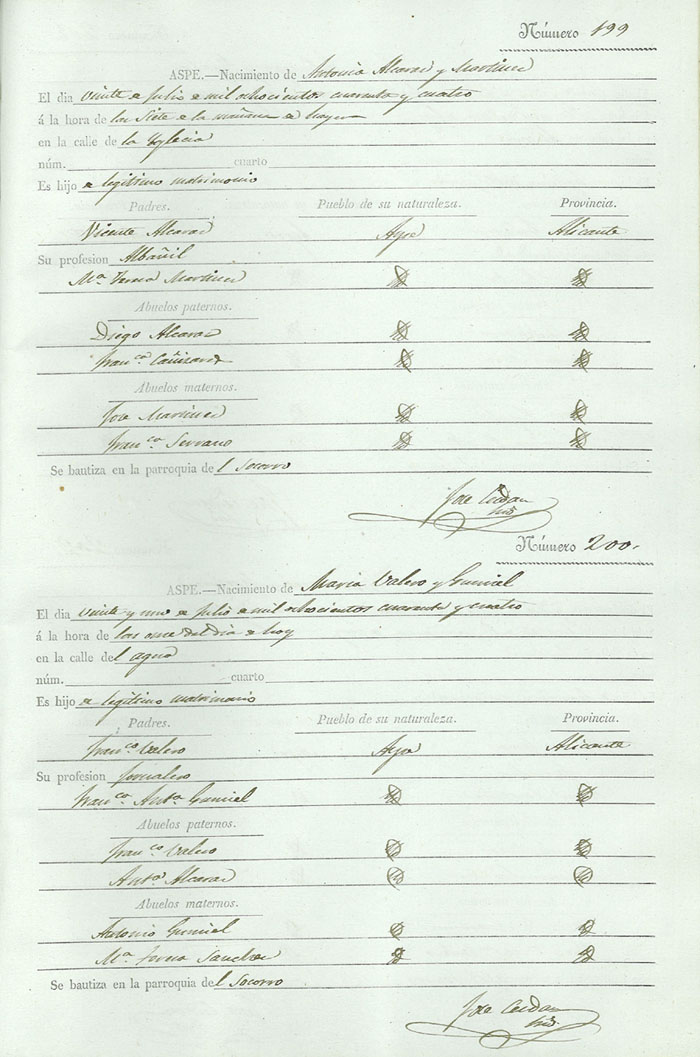 Número 199
ASPE.—Nacimiento de Antonia Alcaraz y Martinez
El dia veinte de Julio de mil ochocientos cuarenta y cuatro
á la hora de las siete de la mañana de hoy
en la calle de la Yglecia
núm. cuarto
Es hijo de legitimo matrimonio
Padres. Pueblo de su naturaleza. Provincia.
Vicente Alcaraz Aspe Alicante
Su profesion Albañil
Mª Teresa Martinez
Abuelos paternos.
Diego Alcaraz
Franca Cañizares
Abuelos maternos.
Jose Martinez
Franca Serrano
Se bautiza en la parroquia del Socorro
Jose Cerdan
Número 200.
ASPE.—Nacimiento de Maria Valero y
El dia veinte y uno de Julio de mil ochocientos cuarenta y cuatro
á la hora de las once del dia de hoy
en la calle del agua
núm. cuarto
Es hijo de legitimo matrimonio
Padres. Pueblo de su naturaleza. Provincia.
Franco Valero Aspe Alicante
Su profesion Jornalero
Franca Anta
Abuelos paternos.
Franco Valero
Anta Alcaraz
Abuelos maternos.
Antonio
Mª Teresa Sanchez
Se bautiza en la parroquia del Socorro
Jose Cerdan